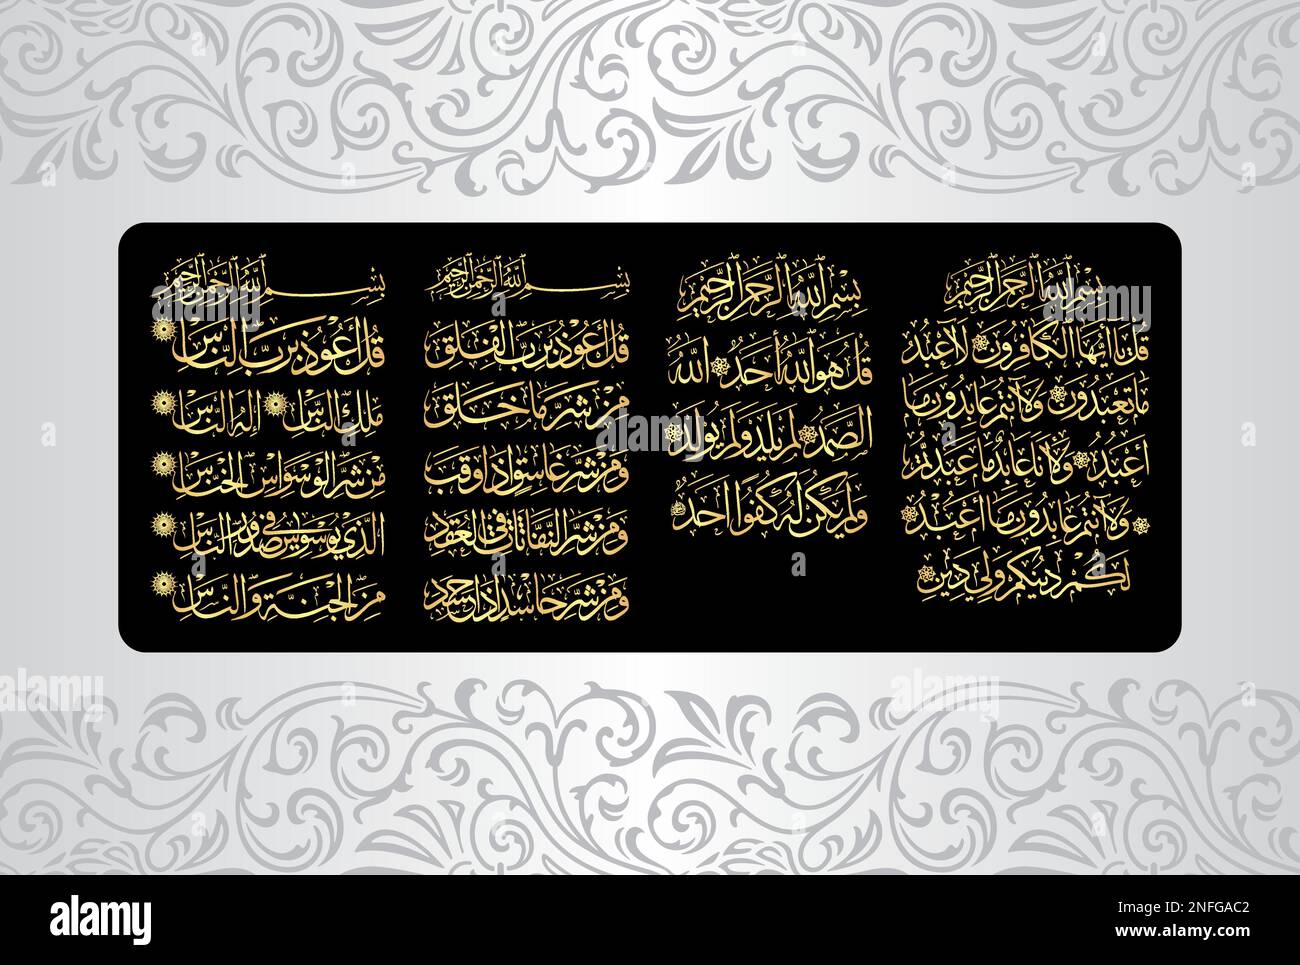 بسم الله الرحمن الرحيم
قل يا أيها الكافرون لا أعبد
ما تعبدون ولا أنتم عابدون ما
أعبد ولا أنا عابد ما عبدتم
ولا أنتم عابدون ما أعبد
لكم دينكم ولي دين
بسم الله الرحمن الرحيم
قل هو الله أحد الله
الصمد لم يلد ولم يولد
ولم يكن له كفوا احد
بسم الله الرحمن الرحيم
قل أعوذ برب الفلق
من شر ما خلق
ومن شر غاسق اذا وقب
ومن شر النفاثات في العقد
ومن شر حاسد إذا حسد
بسم الله الرحمن الرحيم
قل أعوذ برب الناس
ملك الناس إله الناس
من شر الوسواس الخناس
الذي يوسوس في صدور الناس
من الجنة والناس
a
a
a
a
alamy
Image ID: 2NFGAC2
www.alamy.com